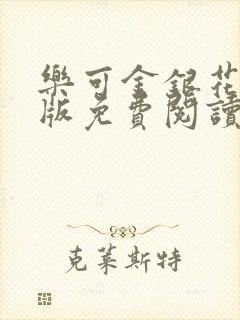 樂可金銀花
版免費閱讀
克萊斯特